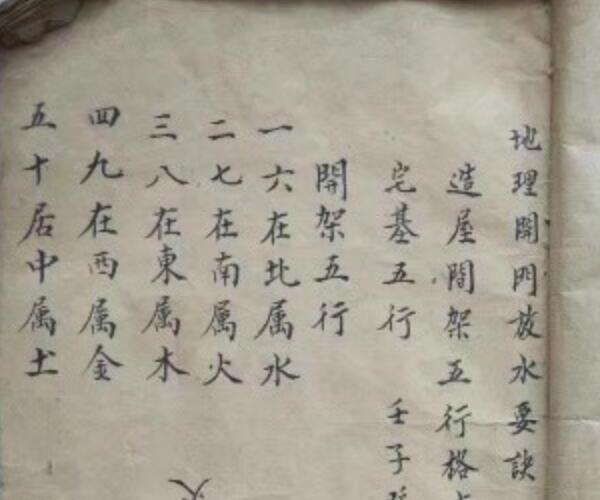 地理開門放水要訣
造屋間架五行格
宅基五行
壬子
開架五行
一六在北属水
二七在南属火
三八在東属木
四九在西属金
五十居中属土